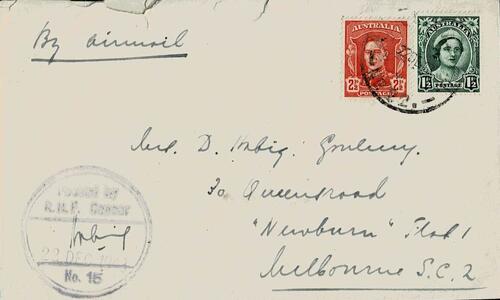 By airmail
AUSTRALIA
2½ 2½
POSTAGE
AUSTRALIA
1½ 1½
POSTAGE
D. Habig
30 Queensroad
"Newburn" Flat 1
Melbourne S.C.2
Passed by
R.A.F. Censor
Habig
22 DEC
No. 15